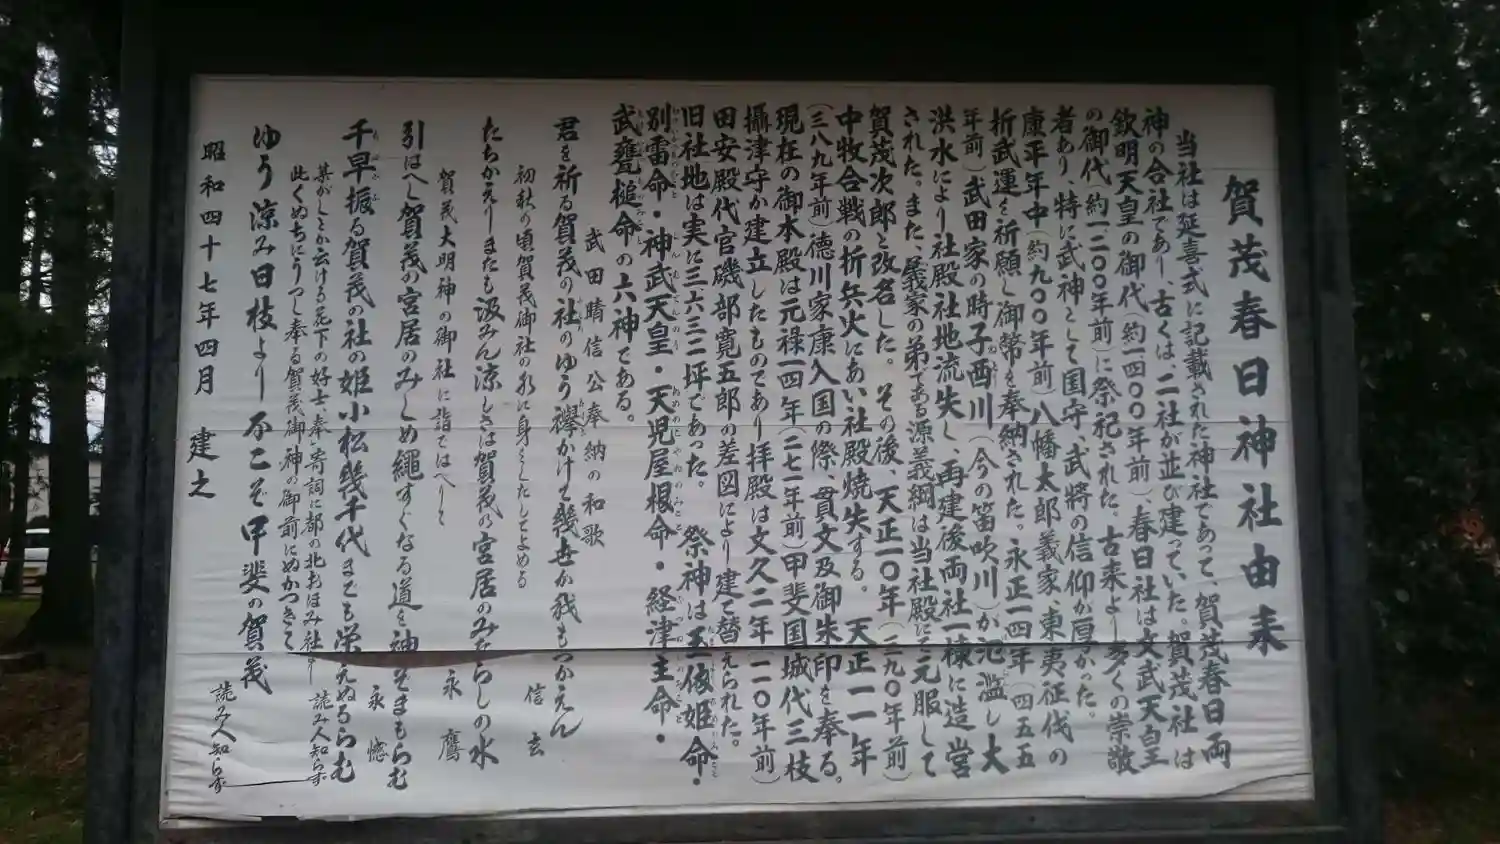 賀茂春日神社由来
当社は延喜式に記載された神社であって、賀茂春日両
神の合社であり、古くは、二社が並び建っていた。賀茂社は
欽明天皇の御代(約一四〇〇年前)、春日社は文武天皇
の御代(約一二〇〇年前)に祭祀された、古来より多くの崇敬
者あり、特に武神として国守、武将の信仰が厚かった。
康平年中(約九〇〇年前)八幡太郎義家、東夷征伐の
折武運を祈願し御幣を奉納された。永正一四年(四五五
年前)武田家の時子酉川(今の笛吹川)が氾濫し大
洪水により社殿社地流失し、再建後両社一棟に造営
された。また、義家の弟である源義綱は当社殿にて元服して
賀茂次郎と改名した。その後、天正一〇年(三九〇年前)
中牧合戦の折兵火にあい社殿焼失する。天正一一年
(三八九年前)徳川家康入国の際、貫文及御朱印を奉る。
現在の御本殿は元禄一四年(二七一年前)甲斐国城代三枝
攝津守が建立したものであり拝殿は文久二年(一一〇年前)
田安殿代官磯部寛五郎の差図により建て替えられた。
旧社地は実に三六三二坪であった。祭神は玉依姫命・
別雷命・神武天皇・天児屋根命・経津主命・
武甕槌命の六神である。
武田晴信公奉納の和歌
君を祈る賀茂の社のゆう襷かけて幾世か我もつかえん
信玄
初秋の頃賀茂御社の水に身をしたしてよめる
たちかえりまたも汲みん涼しさは賀茂の宮居のみたらしの水
永鷹
賀茂大明神の御社に詣てはへりて
引はへし賀茂の宮居のみしめ縄すぐなる道を神そまもらむ
永憾
千早振る賀茂の社の姫小松幾千代までも栄えぬるらむ
読み人知らず
某がしとか云ける花下の好士、奉寄詞に都の北おほみ社を
此くぬちにうつし奉る賀茂御神の御前にぬかつきて
ゆう涼み日枝より不こそ甲斐の賀茂
読み人知らず
昭和四十七年四月 建之